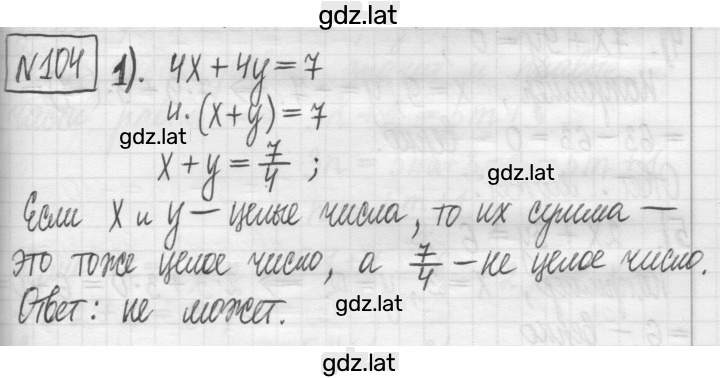 gdz.lat
№104 1). 4x + 4y = 7
4·(x+y) = 7
gdz.lat
x + y = 7/4 ;
gdz.lat
Если x и y — целые числа, то их сумма —
это тоже целое число, а 7/4 — не целое число.
Ответ: не может.
gdz.lat
gdz.lat